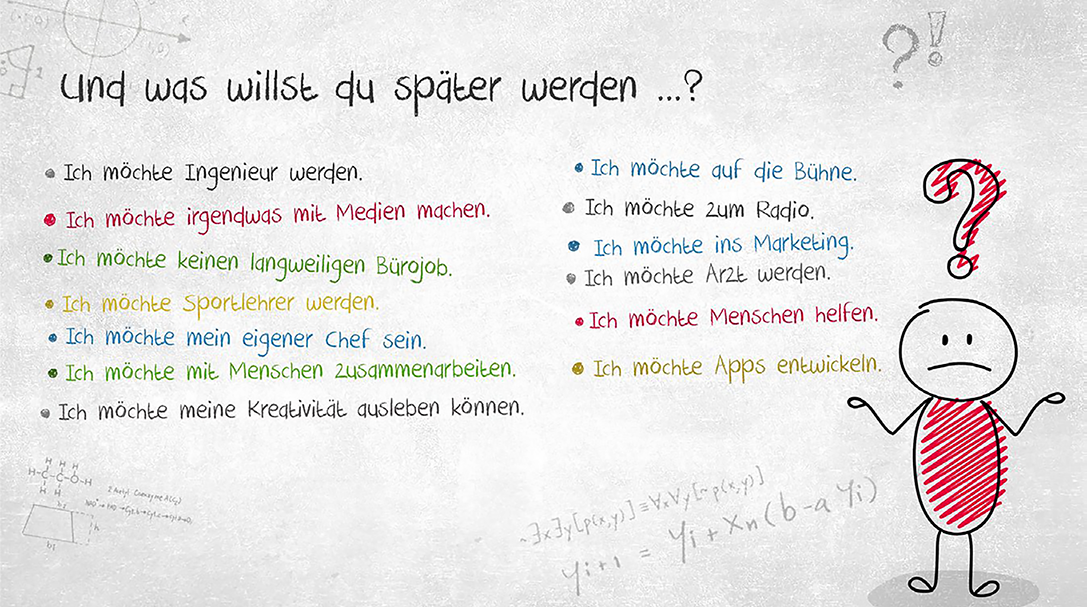 Und was willst du später werden ...?
Ich möchte Ingenieur werden.
Ich möchte irgendwas mit Medien machen.
Ich möchte keinen langweiligen Bürojob.
Ich möchte Sportlehrer werden.
Ich möchte mein eigener Chef sein.
Ich möchte mit Menschen zusammenarbeiten.
Ich möchte meine Kreativität ausleben können.
Ich möchte auf die Bühne.
Ich möchte zum Radio.
Ich möchte ins Marketing.
Ich möchte Arzt werden.
Ich möchte Menschen helfen.
Ich möchte Apps entwickeln.
? !
?
H H H
H-C-C-O-H
H H
~∃x∃y[p(x,y)]≡∀x∀y[~p(x,y)]
yi+1 = yi + xn(b-a yi)